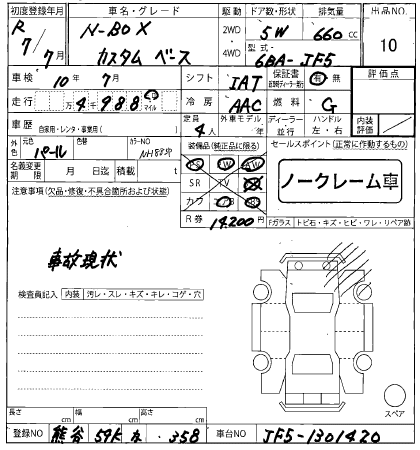 初度登録年月 車名・グレード 駆動 ドア数・形状 排気量 出品NO.
R 7/7月 N-BOX カスタム ベース 2WD 4WD 5W 660cc 10
型式 6BA-JF5
車検 10年 7月 シフト IAT 保証書 有・無 評価点
走行 万4千988 km マイル 冷房 AAC 燃料 G
車歴 自家用・レンタ・事業用( ) 定員 4人 外車モデル 年 ディーラー 並行 ハンドル 左・右 内装評価
外色 元色 パール 色替 カラーNO NH883P 装備品(純正品に限る) セールスポイント(正常に動作するもの)
名義変更期限 月 日迄 積載 t PS PW AW ノークレーム車
注意事項(欠品・修復・不具合箇所および状態) SR TV
カワ
R券 14,200円 Fガラス トビ石・キズ・ヒビ・ワレ・リペア跡
事故現状
検査員記入 内装 汚レ・スレ・キズ・キレ・コゲ・穴
スペア
長さ cm 幅 cm 高さ cm
登録NO 熊谷 594 な ・358 車台NO JF5-1301420